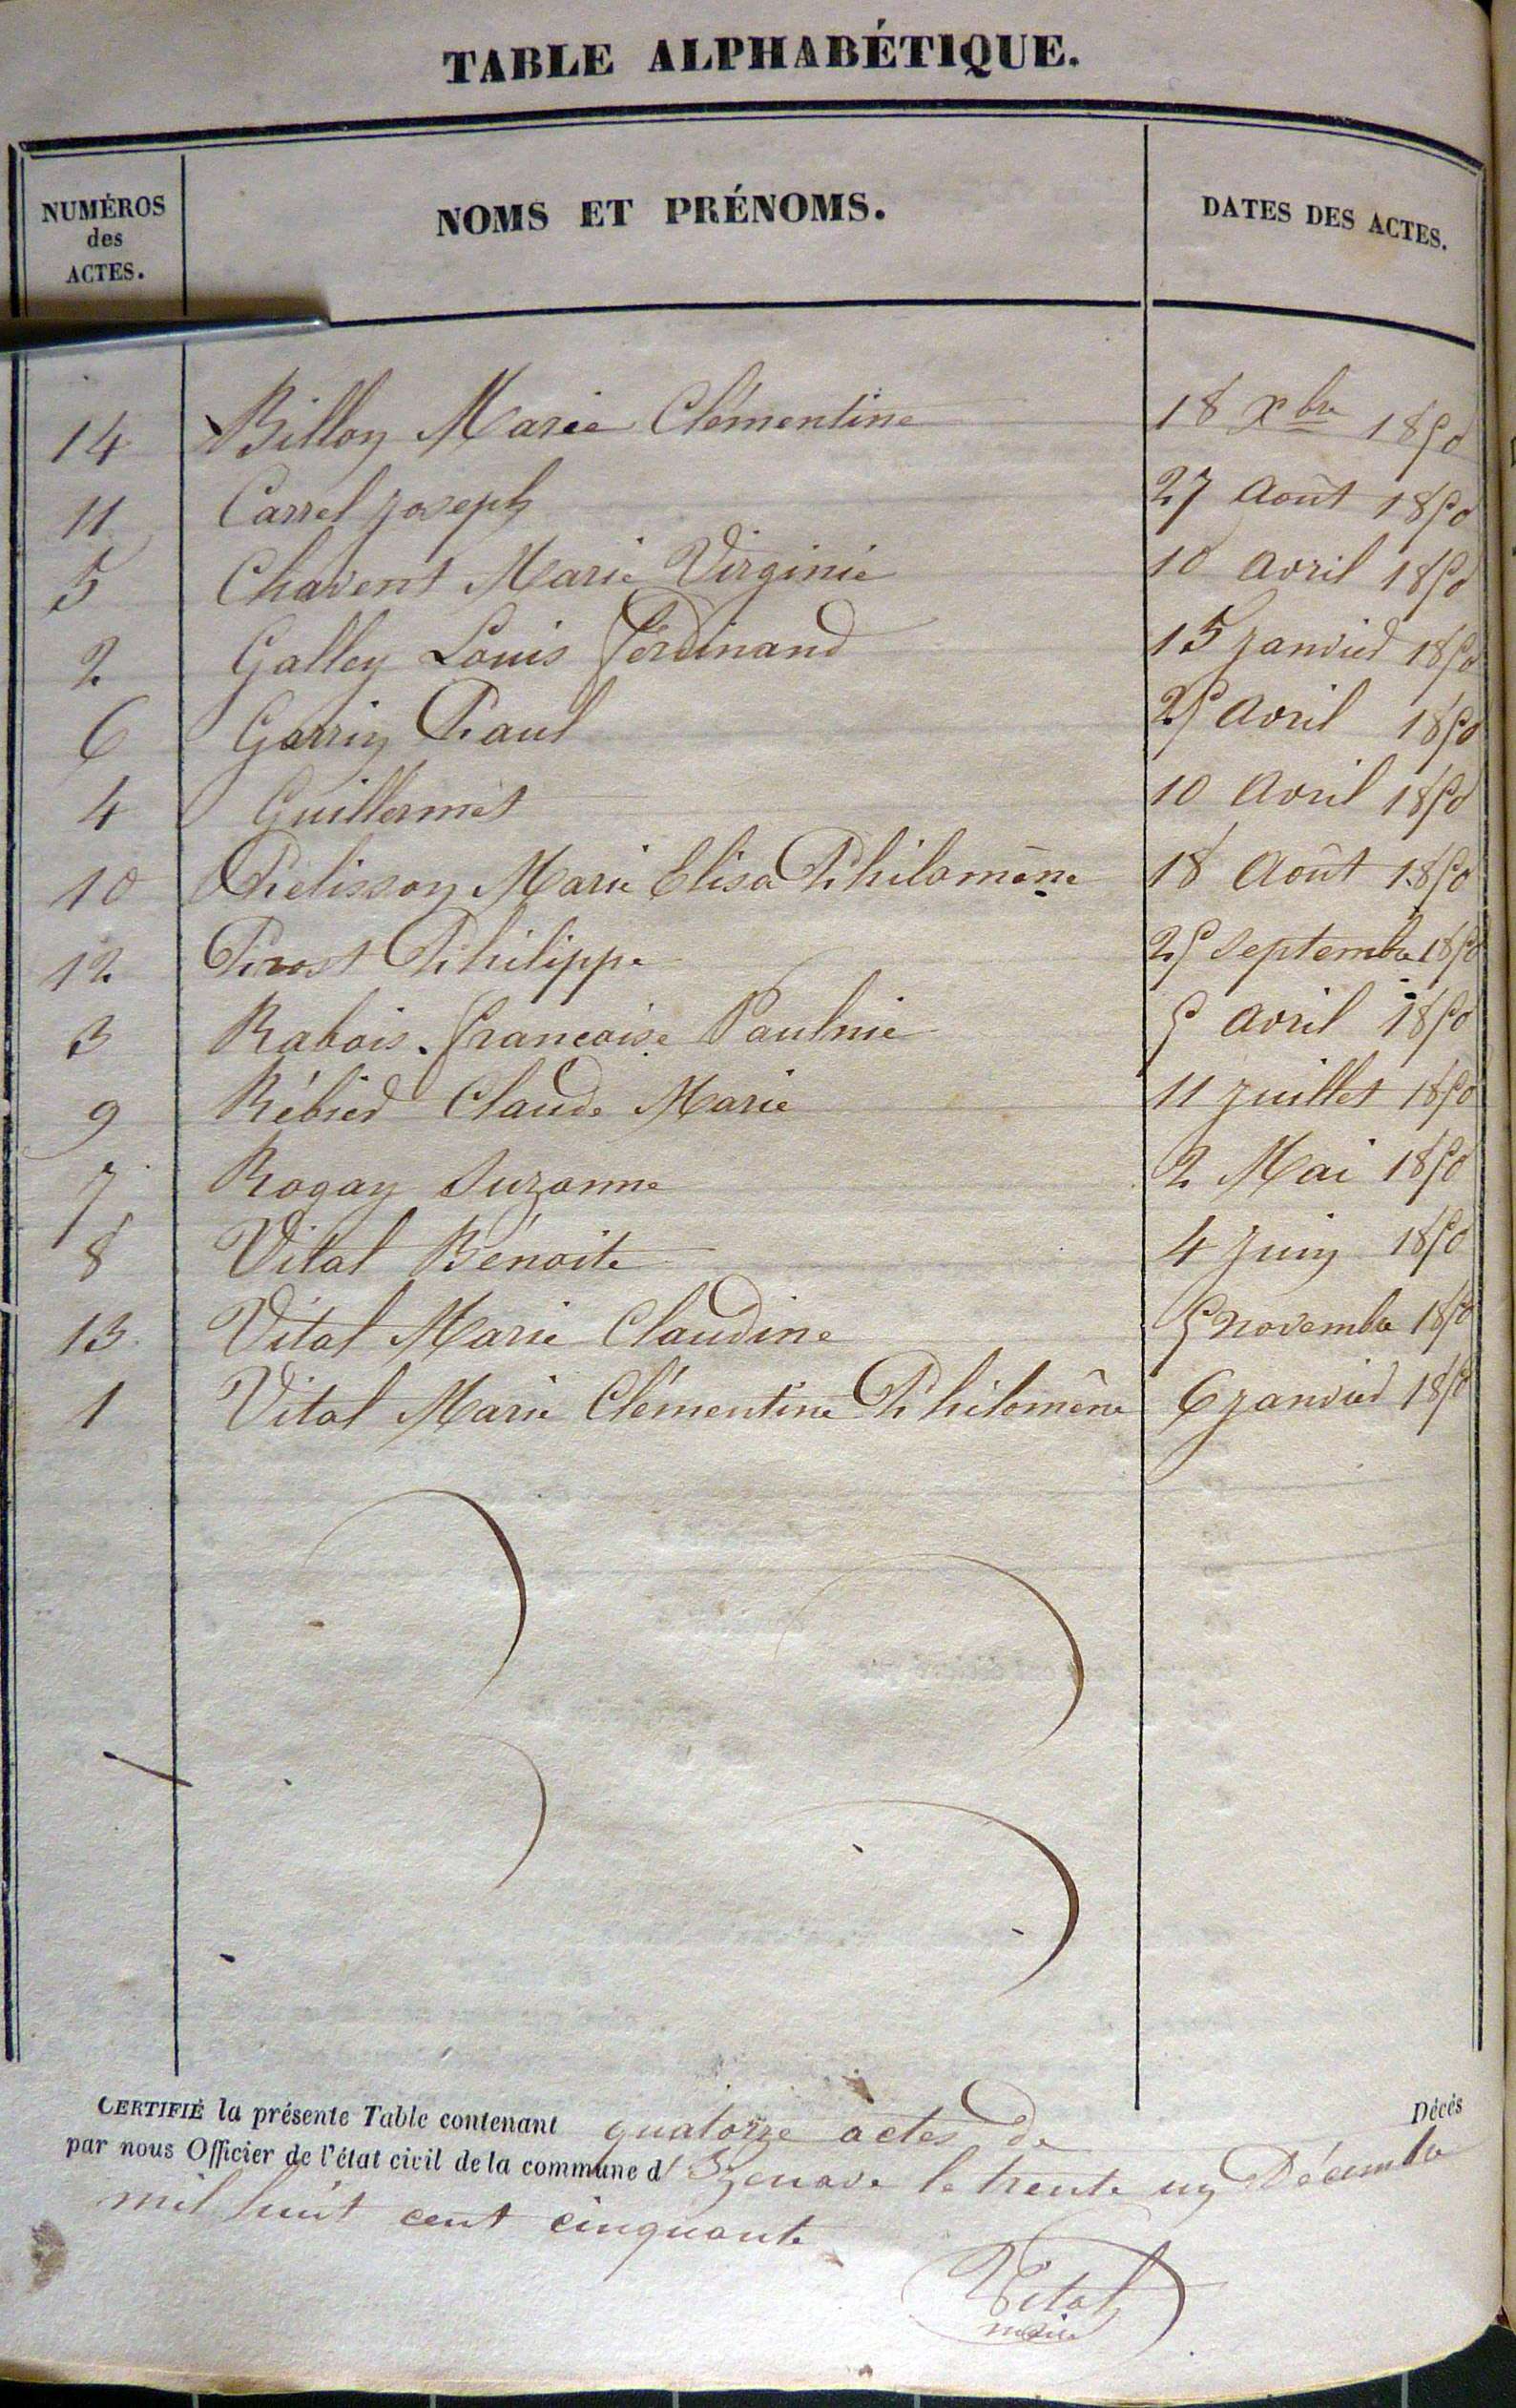 TABLE ALPHABÉTIQUE.
NUMÉROS des ACTES. NOMS ET PRÉNOMS. DATES DES ACTES.
14 Billon Marie Clémentine 18 Xbre 1850
11 Carrel Joseph 27 Août 1850
5 Chavent Marie Virginie 10 Avril 1850
2 Galley Louis Ferdinand 15 Janvier 1850
6 Garrin Paul 25 Avril 1850
4 Guillermet 10 Avril 1850
10 Pelisson Marie Elisa Philomène 18 Août 1850
12 Prost Philippe 25 Septembre 1850
3 Rabois Francoise Paulnie 5 Avril 1850
9 Rébier Claude Marie 11 Juillet 1850
7 Rogay Suzanne 2 Mai 1850
8 Vital Bénoite 4 Juin 1850
13 Vital Marie Claudine 5 Novembre 1850
1 Vital Marie Clémentine Philomène 6 Janvier 1850
CERTIFIÉ la présente Table contenant quatorze actes de Décés
par nous Officier de l'état civil de la commune d' Izenave le trente un Décembre
mil huit cent cinquante
Vital
maire